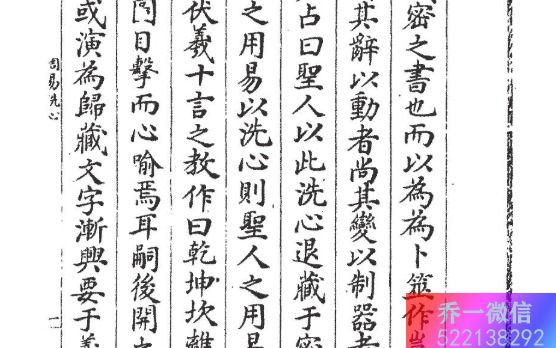 密之書也而以為為卜筮作豈
其辭以動者尚其變以制器者
占曰聖人以此洗心退藏于密
之用易以洗心則聖人之用易
伏羲十言之教作曰乾坤坎離
目擊而心喻焉耳嗣後開
或演為歸藏文字漸興要于
周易洗心
乔一微信
522138292